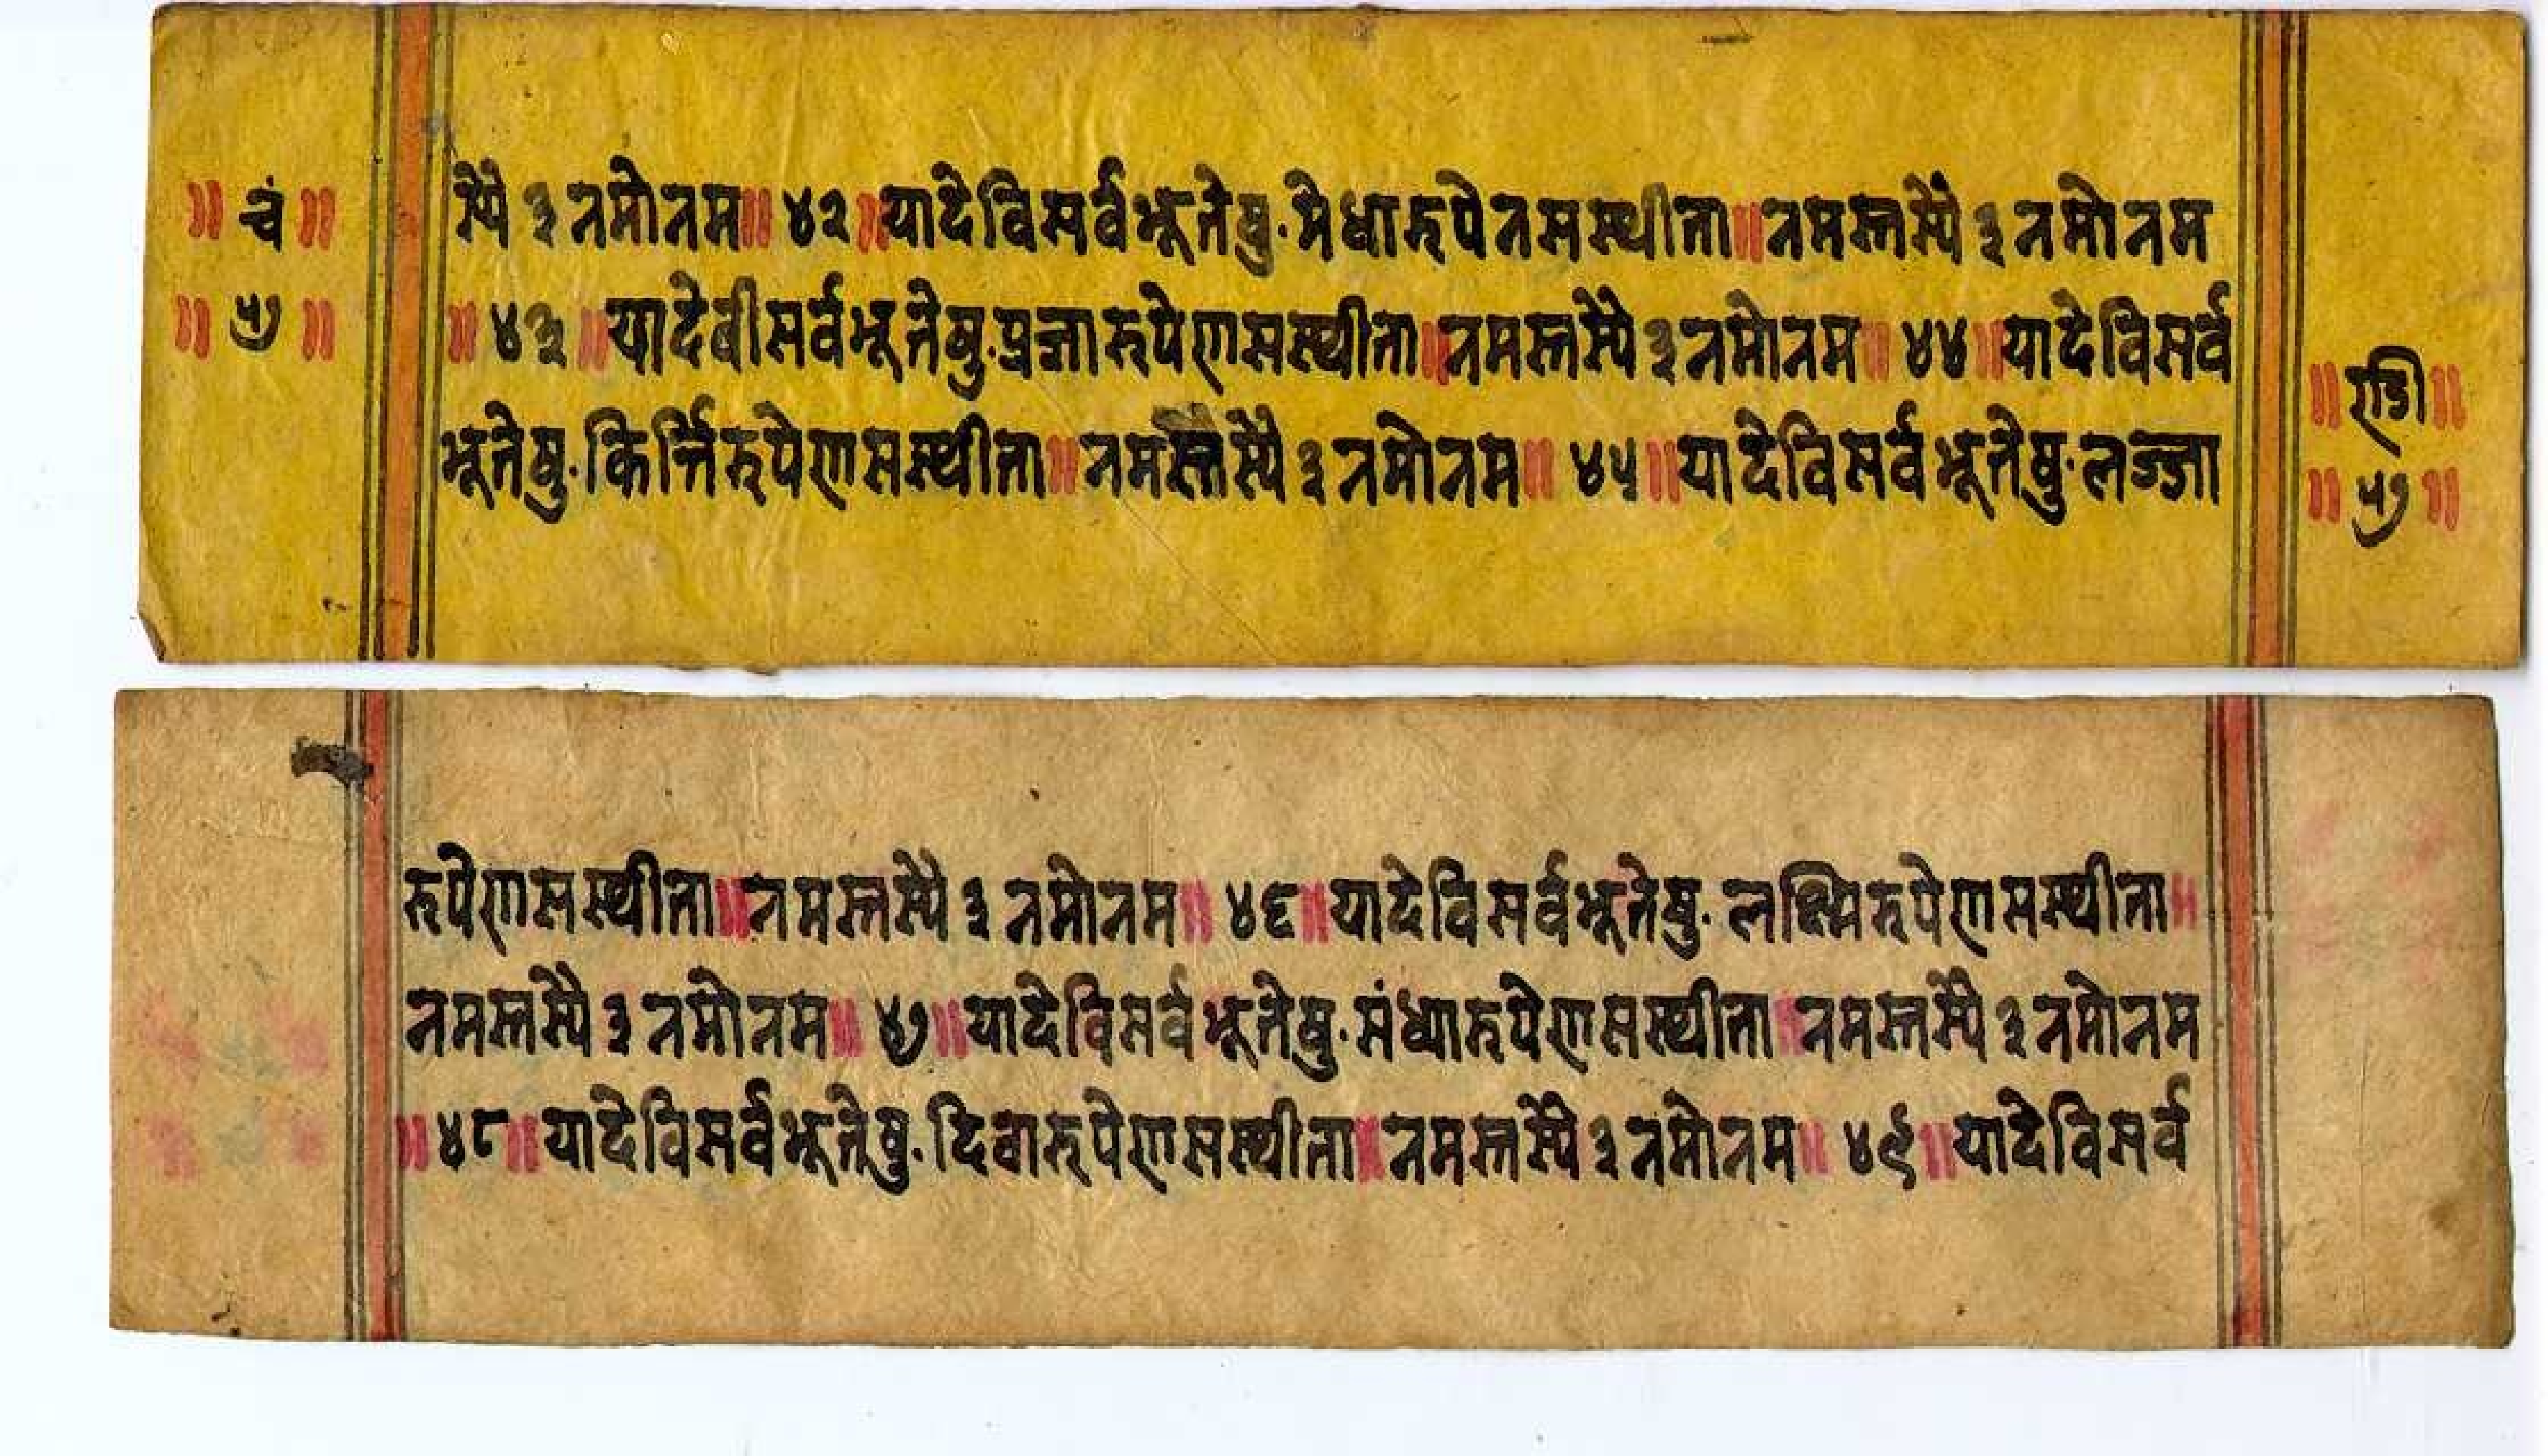 ॥ चं ॥
॥ ५७ ॥
स्यै ३ नमोनम॥ ४२ ॥यादेविसर्वभूतेषु·मेधारुपेनसस्थीता॥नमस्तस्यै ३ नमोनम
॥ ४३ ॥यादेवीसर्वभूतेषु·प्रज्ञारुपेणसस्थीता॥नमस्तस्यै ३ नमोनम॥ ४४ ॥यादेविसर्व
भूतेषु·किर्त्तिरुपेणसस्थीता॥नमस्तस्यै ३ नमोनम॥ ४५ ॥यादेविसर्वभूतेषु·लज्जा
॥ण्डी॥
॥ ५७ ॥
रुपेणसस्थीता॥नमस्तस्यै ३ नमोनम॥ ४६ ॥यादेविसर्वभूतेषु·लक्ष्मिरुपेणसस्थीता॥
नमस्तस्यै ३ नमोनम॥ ४७ ॥यादेविसर्वभूतेषु·संध्यारुपेणसस्थीता॥नमस्तस्यै ३ नमोनम
॥ ४८ ॥यादेविसर्वभूतेषु·दिवारुपेणसस्थीता॥नमस्तस्यै ३ नमोनम॥ ४९ ॥यादेविसर्व